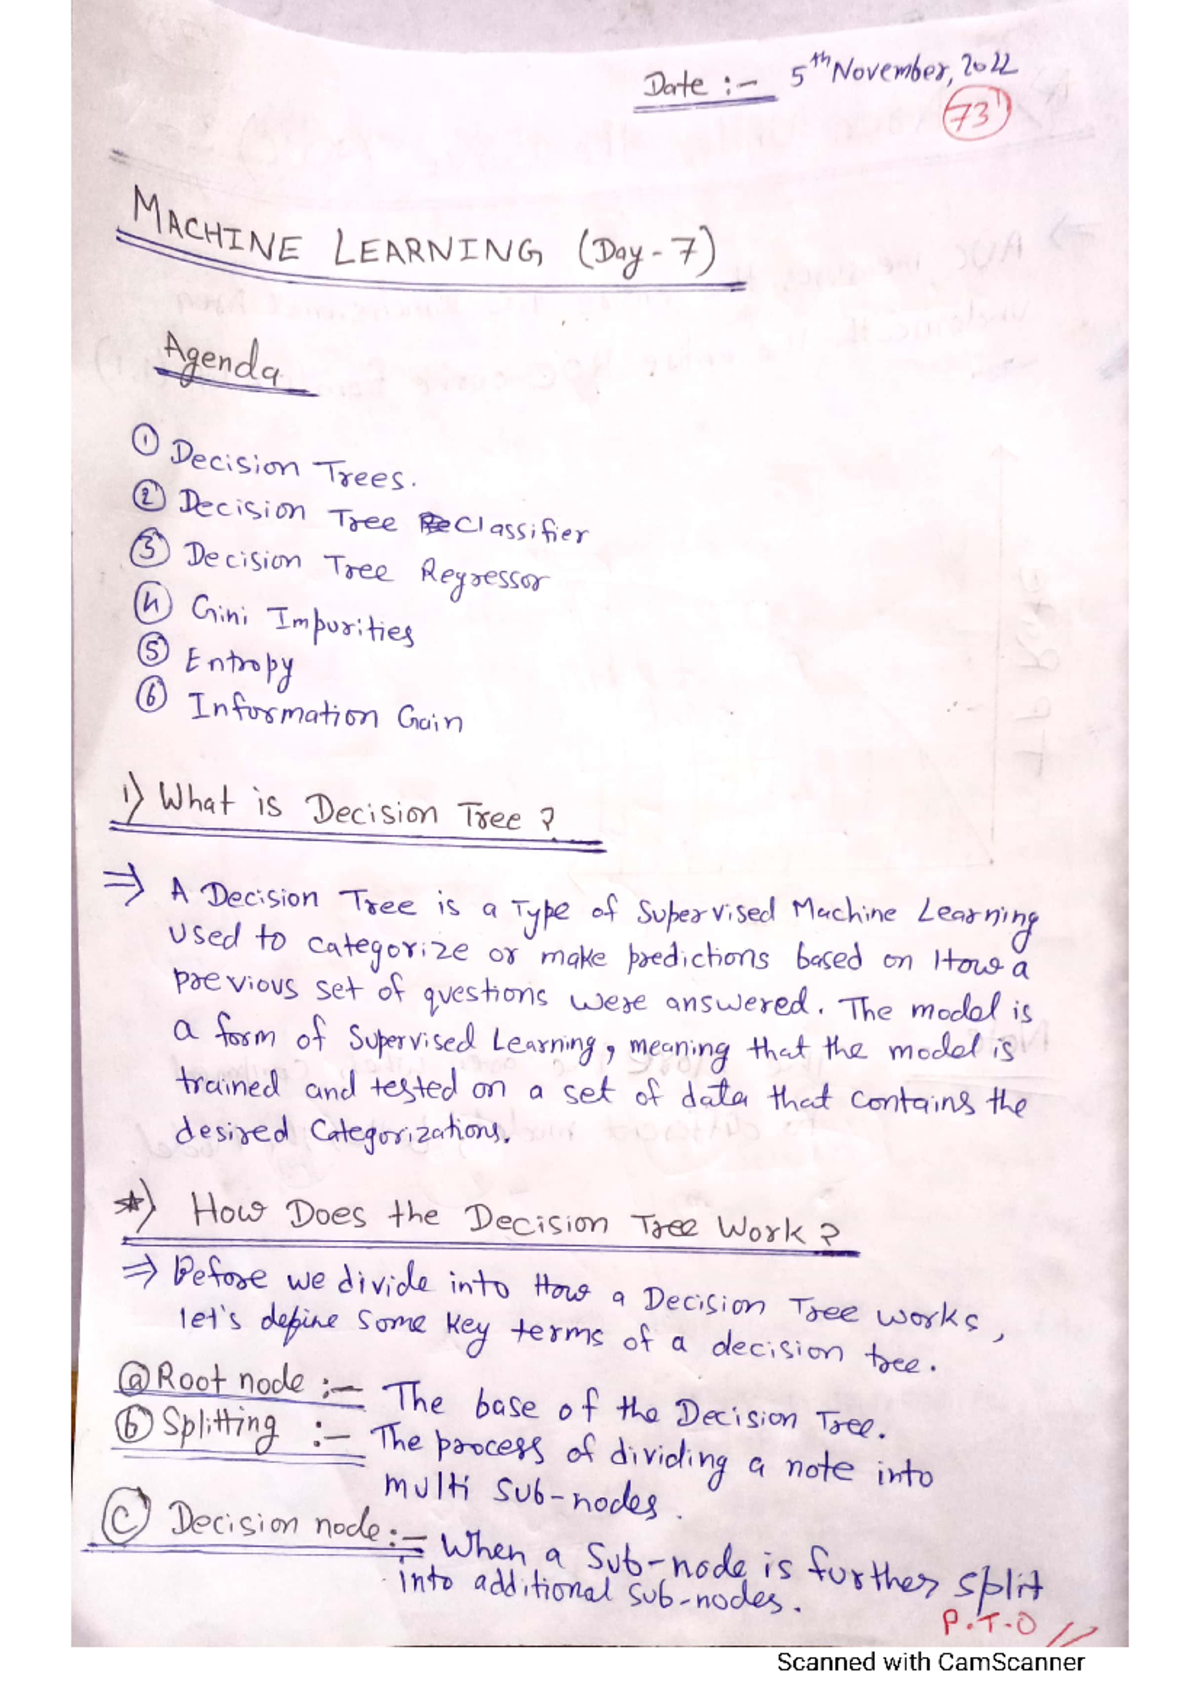 Date :- 5th November, 2022
73
MACHINE LEARNING (Day-7)
Agenda
① Decision Trees.
② Decision Tree Classifier
③ Decision Tree Regressor
④ Gini Impurities
⑤ Entropy
⑥ Information Gain
1) What is Decision Tree ?
⇒ A Decision Tree is a Type of Supervised Machine Learning
used to categorize or make predictions based on How a
previous set of questions were answered. The model is
a form of Supervised Learning, meaning that the model is
trained and tested on a set of data that contains the
desired Categorizations.
*) How Does the Decision Tree Work ?
⇒ Before we divide into How a Decision Tree works,
let's define some key terms of a decision tree.
ⓐ Root node :- The base of the Decision Tree.
ⓑ Splitting :- The process of dividing a note into
multi sub-nodes.
ⓒ Decision node :- When a Sub-node is further split
into additional sub-nodes.
P.T.O //
Scanned with CamScanner